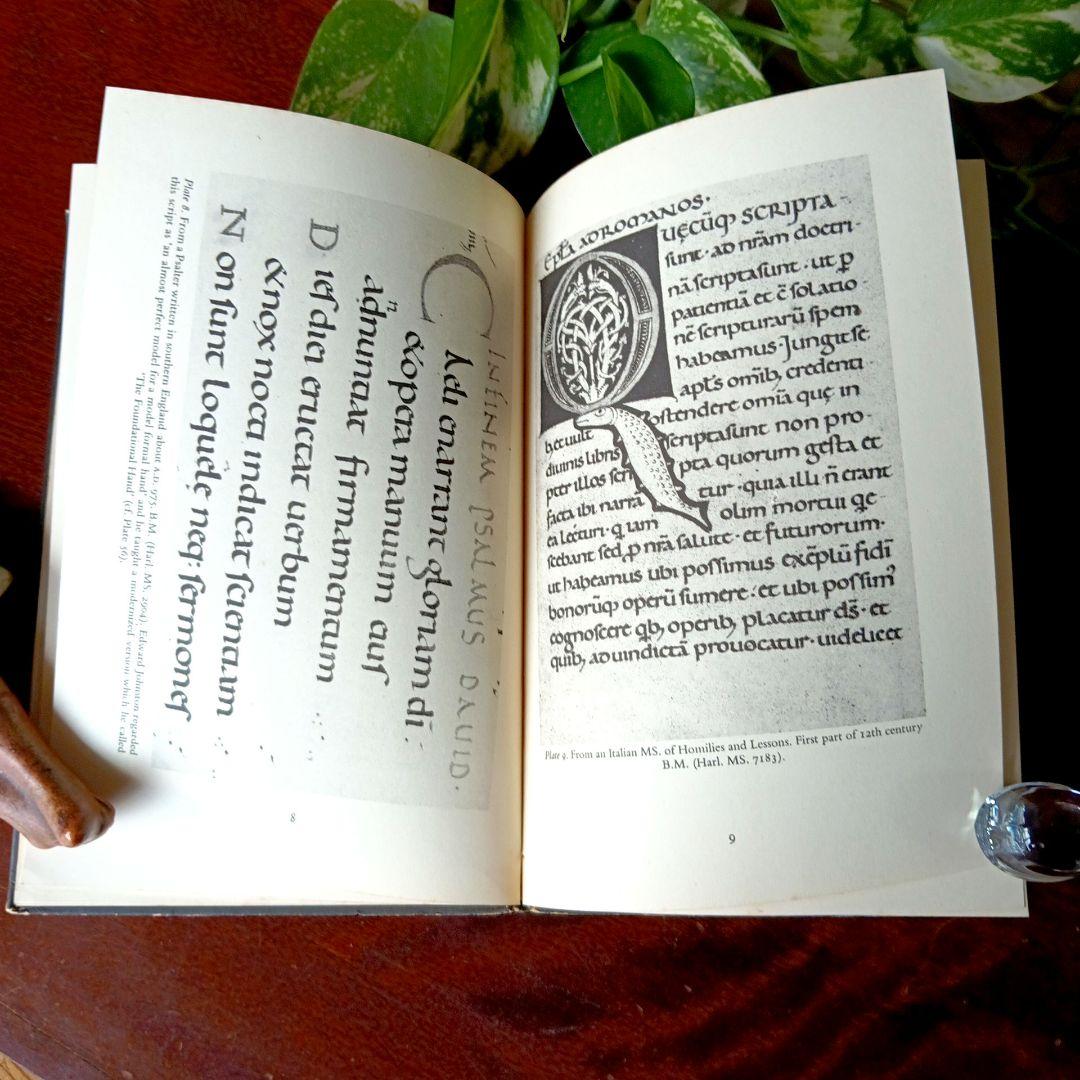 IN FINEM PSALMUS DAUID.
Celi enarrant gloriam di:
&opera manuum eiuſ
adnuntiat firmamentum
Dieſ diei eructat uerbum
&nox nocti indicat ſcientiam
Non ſunt loquelę neq: ſermoneſ
Plate 8. From a Psalter written in southern England about A.D. 975. B.M. (Harl. MS. 2904). Edward Johnston regarded
this script as 'an almost perfect model for a model formal hand' and he taught a modernized version which he called
'The Foundational Hand' (cf. Plate 56).
8
AD ROMANOS.
QUĘCŪQ; SCRIPTA
ſunt · ad nr̄am doctri-
nā ſcripta ſunt · ut p̱
patientiā et c̄ſolatio
nē ſcripturarū ſpem
habeamus · Jungit ſe
apl̄s om̄ib; credenti
b; et uult oſtendere om̄ia quę in
diuinis libris ſcripta ſunt non pro
pter illos ſcripta quorum geſta et
facta ibi narrantur · quia illi n̄ erant
ea lecturi · q̄ iam olim mortui ꝗe
ſcebant ſed p̱ nr̄a ſalute · et futurorum ·
ut habeamus ubi poſſimus exēplū fidi
bonorūq; operū ſumere · et ubi poſſim'
cognoſcere qb; operib; placatur ds̄ · et
quib; ad uindictā prouocatur · uidelicet
Plate 9. From an Italian MS. of Homilies and Lessons. First part of 12th century
B.M. (Harl. MS. 7183).
9